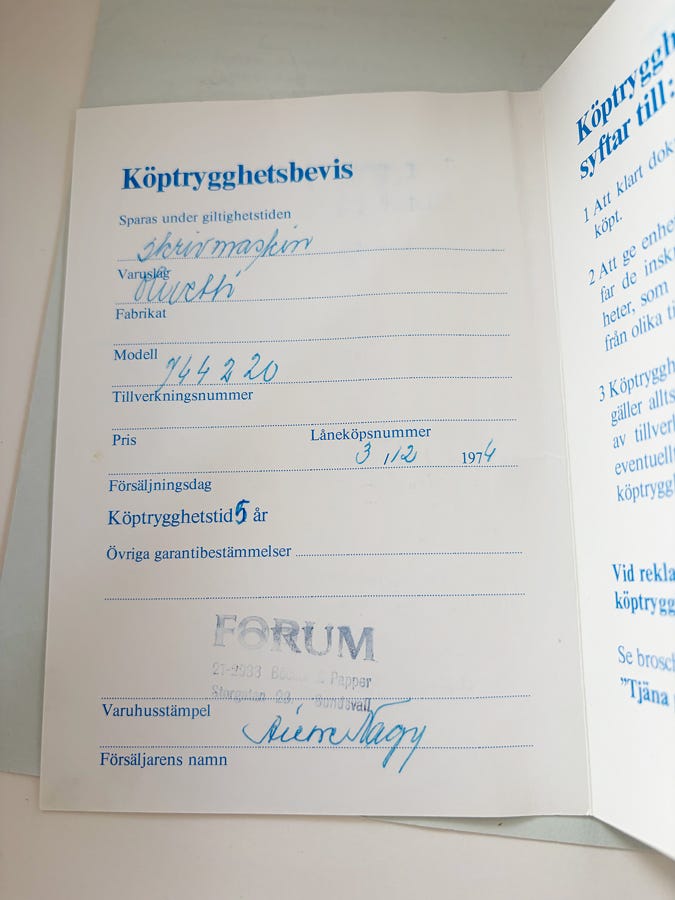 Köptrygghetsbevis
Sparas under giltighetstiden
Skrivmaskin
Varuslag
Olivetti
Fabrikat
Modell
744220
Tillverkningsnummer
Pris Låneköpsnummer
3 12 1974
Försäljningsdag
Köptrygghetstid 5 år
Övriga garantibestämmelser
FORUM
Papper
Storgatan Sundsvall
Varuhusstämpel
Nagy
Försäljarens namn
Köptryggh
syftar till:
1 Att klart dok
köpt.
2 Att ge enhe
far de inskr
heter, som
från olika ti
3 Köptryggh
gäller allts
av tillver
eventuell
köptrygg
Vid rekla
köptrygg
Se brosc
"Tjäna